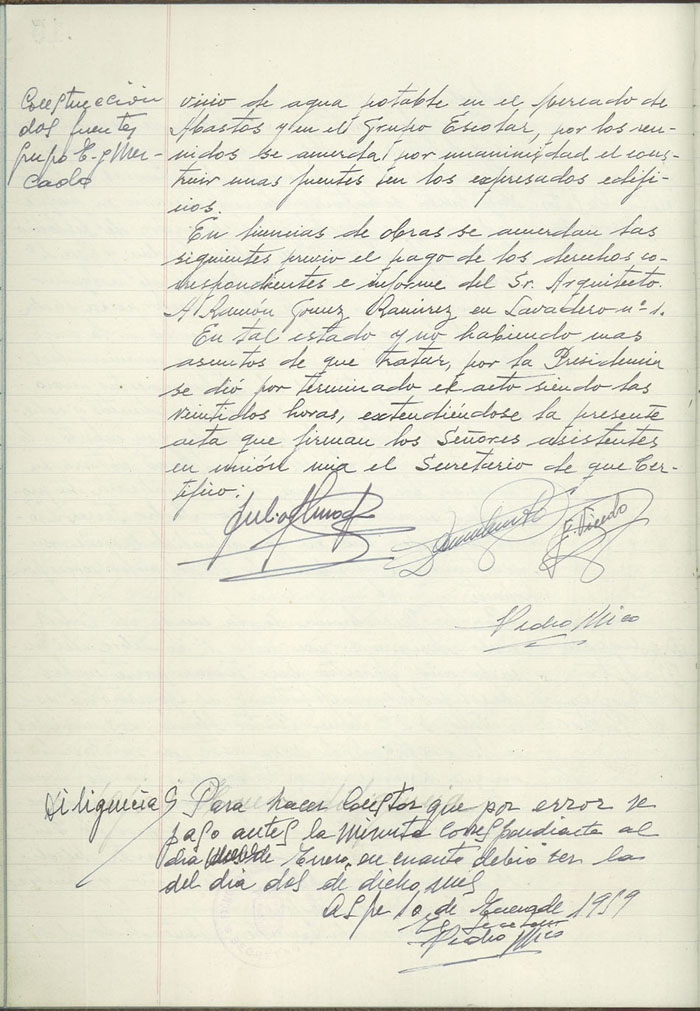 Construcción
dos fuentes
grupo E. y Mer-
cado
vicio de agua potable en el Mercado de
Abastos y en el Grupo Escolar, por los reu-
nidos se acuerda por unanimidad el cons-
truir unas fuentes en los expresados edifi-
cios.
En licencias de obras se acuerdan las
siguientes previo el pago de los derechos co-
rrespondientes e informe del Sr. Arquitecto.
A Ramón Gomez Ramirez en Lavadero nº 1.
En tal estado y no habiendo mas
asuntos de que tratar, por la Presidencia
se dió por terminado el acto siendo las
veintidos horas, extendiéndose la presente
acta que firman los Señores asistentes
en unión mia el Secretario de que Cer-
tifico:
F. Vicedo
Pedro Mico
Diligencia Para hacer constar que por error se
paso antes la minuta correspondiente al
dia de Enero, en cuanto debio ser la
del dia dos de dicho mes
Aspe 10 de Enero de 1959
El Secretario
Pedro Mico